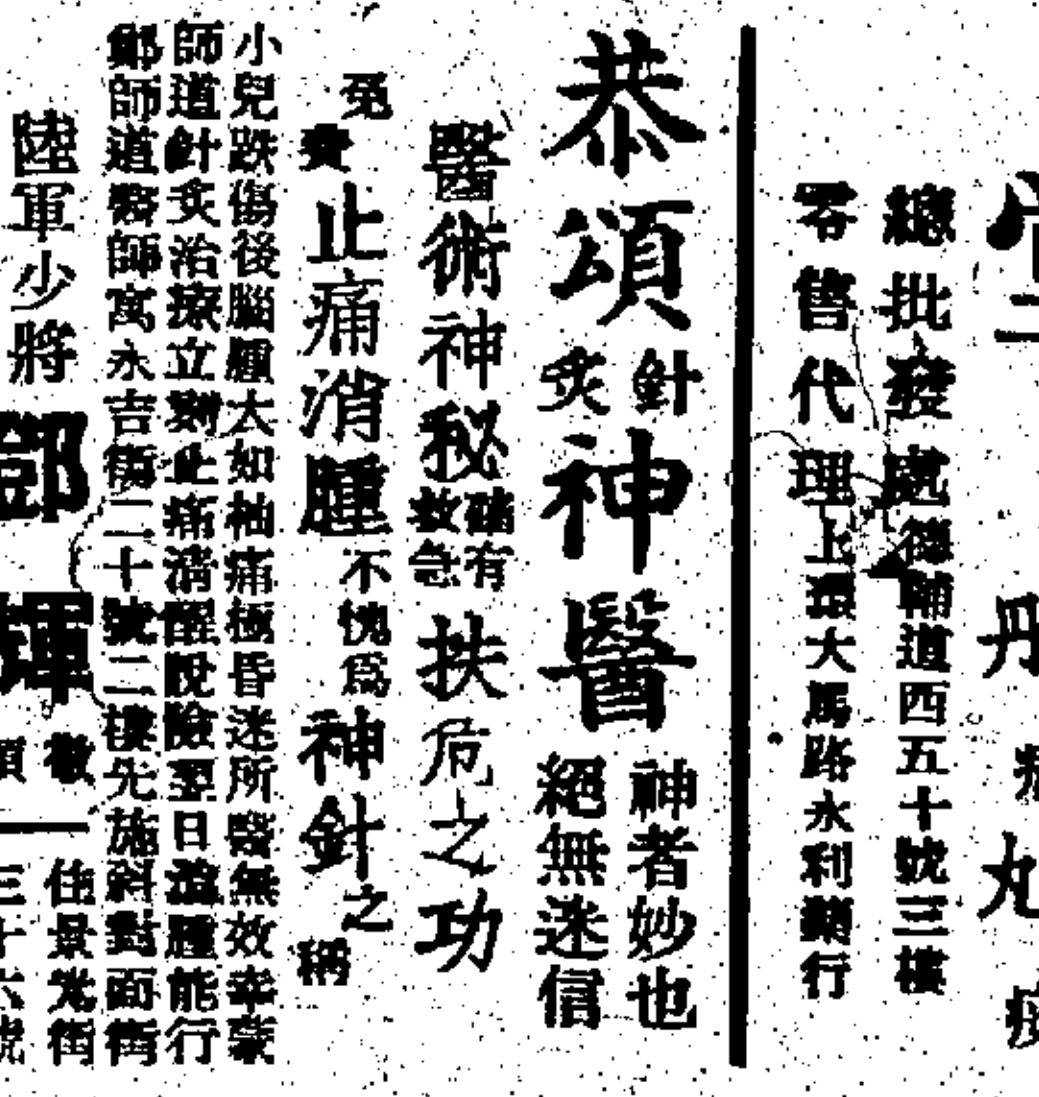 丹
丸
總批發處德輔道西五十號三樓
零售代理上環大馬路永利號行
恭頌針炙神醫神者妙也絕無迷信
醫術神秘確有救急扶危之功
免費止痛消腫不愧爲神針之稱
小兒跌傷後腦腫大如柚痛極昏迷所醫無效幸蒙
師道針炙治療立刻止痛清醒脫險翌日退腫能行
鄭師道醫師寓永吉街二十號二樓先施斜對面街
陸軍少將鄧輝
敬頌
住景光街
三十六號